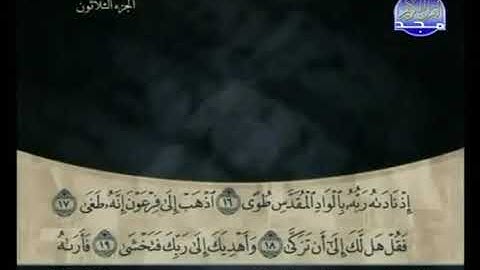 الجزء الثلاثون
مجد
إِذْ نَادَىٰهُ رَبُّهُۥ بِٱلْوَادِ ٱلْمُقَدَّسِ طُوًى ١٦ ٱذْهَبْ إِلَىٰ فِرْعَوْنَ إِنَّهُۥ طَغَىٰ ١٧
فَقُلْ هَل لَّكَ إِلَىٰٓ أَن تَزَكَّىٰ ١٨ وَأَهْدِيَكَ إِلَىٰ رَبِّكَ فَتَخْشَىٰ ١٩ فَأَرَىٰهُ